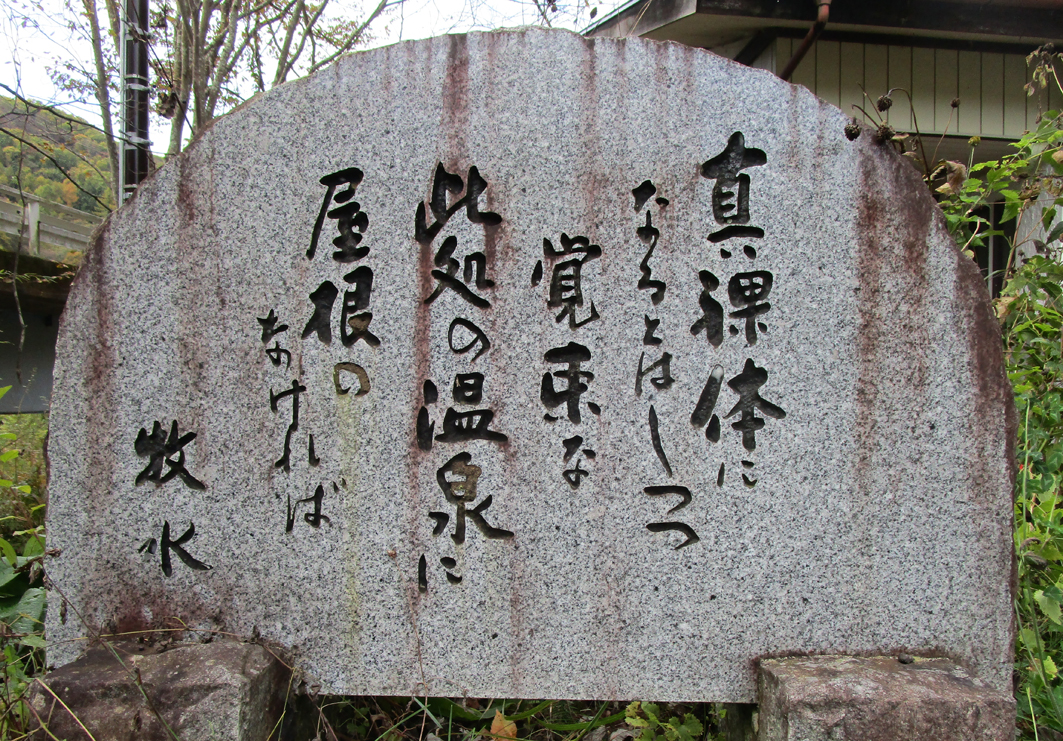 真裸体に
なるとはしつつ
覚束な
此処の温泉に
屋根の
なければ
牧水